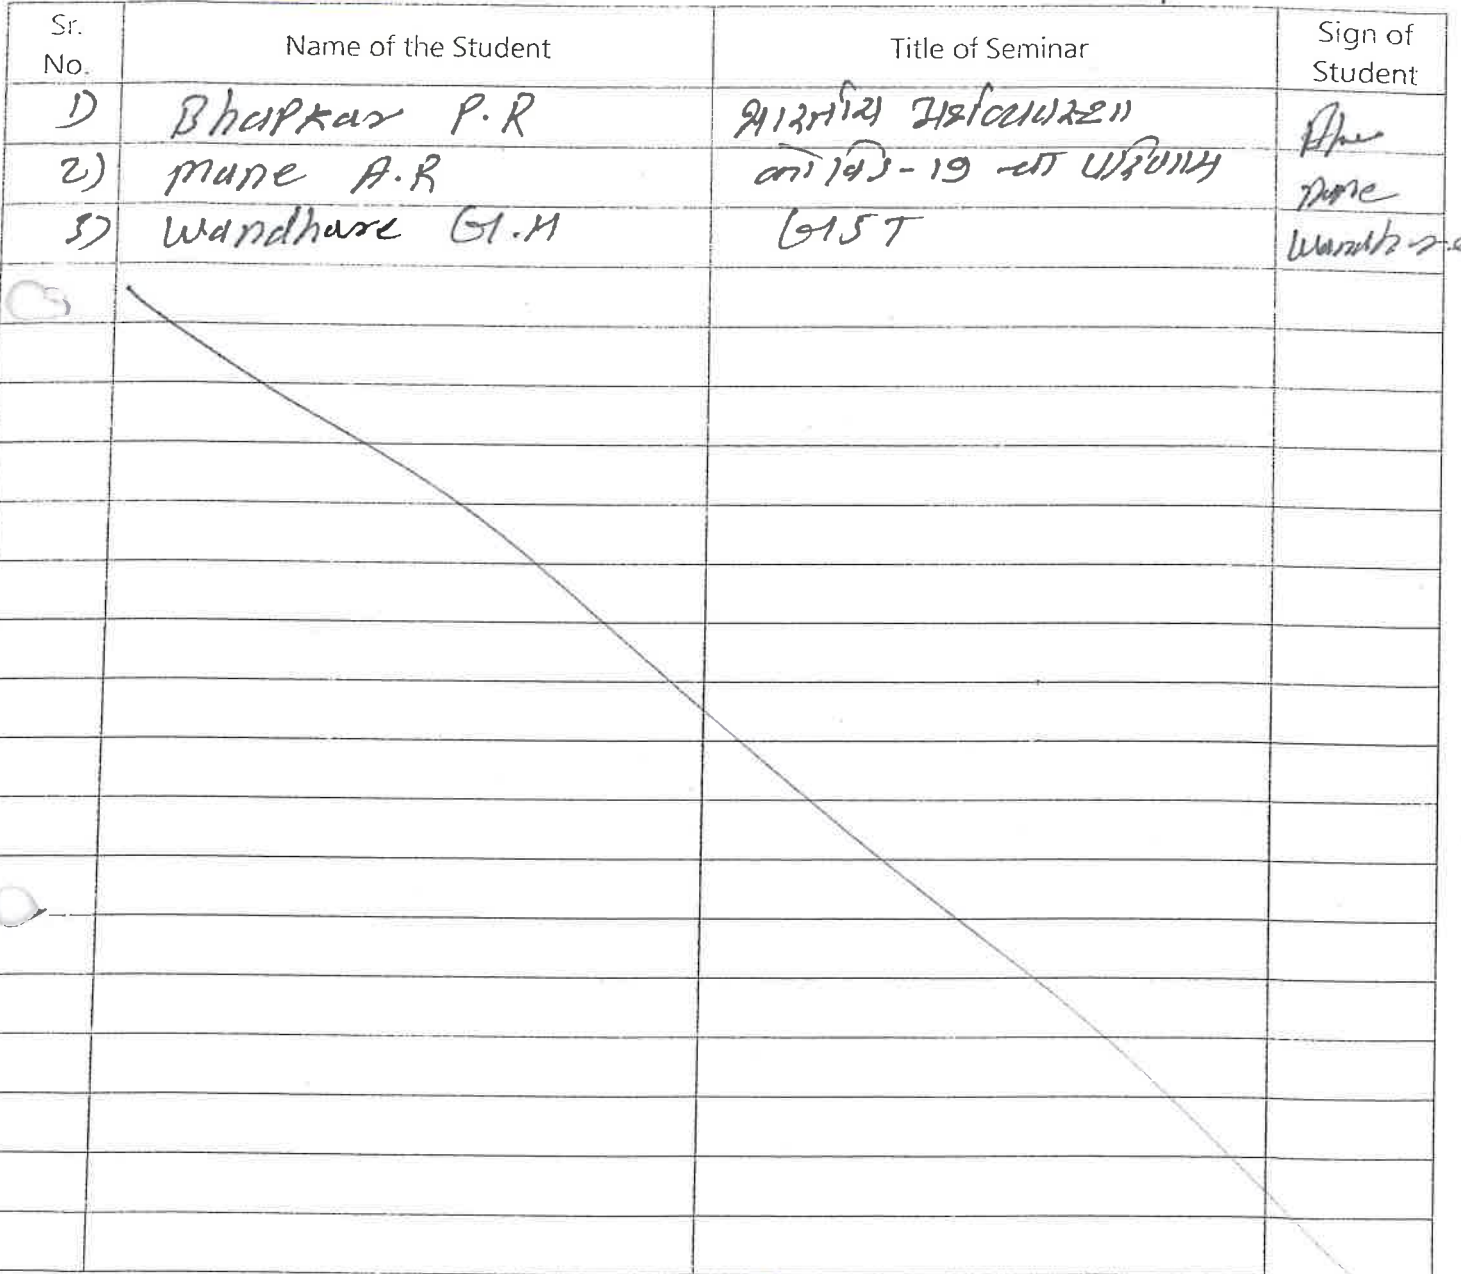 Sr. No. Name of the Student Title of Seminar Sign of Student
1) Bhapkar P.R भारतीय अर्थव्यवस्था
2) Mane A.R कोविड-19 चा परिणाम Mane
3) Wandhare G.H GST Wandhare